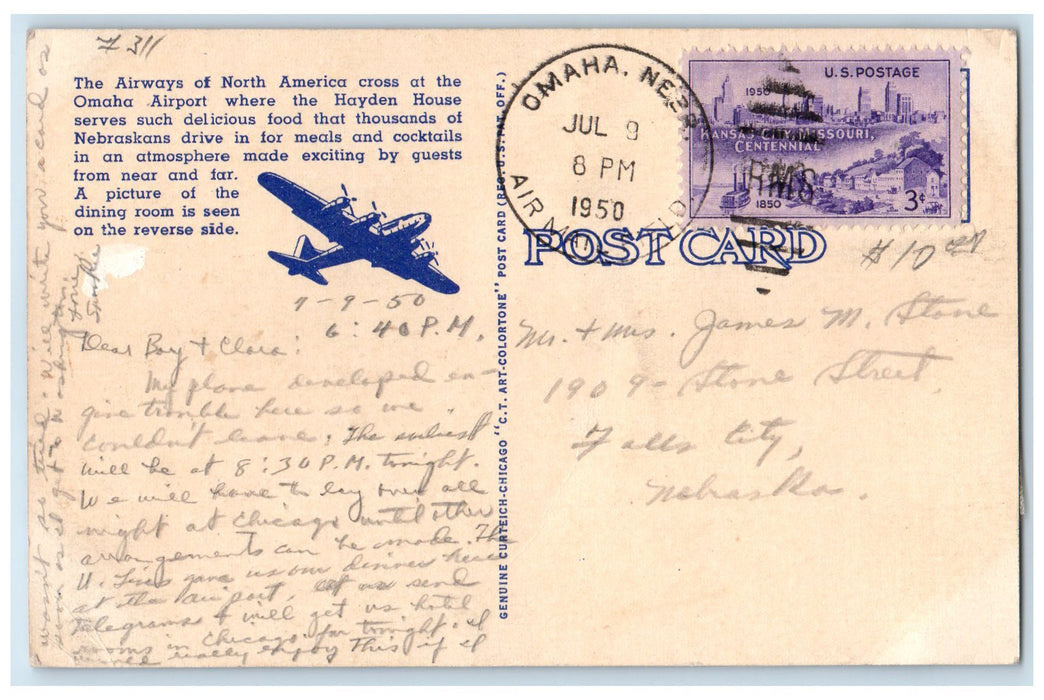 7311
The Airways of North America cross at the
Omaha Airport where the Hayden House
serves such delicious food that thousands of
Nebraskans drive in for meals and cocktails
in an atmosphere made exciting by guests
from near and far.
A picture of the
dining room is seen
on the reverse side.
7-9-50
6:40 P.M.
Dear Boy + Clara:
My plane developed en-
gine trouble here so we
couldn't leave. The earliest
will be at 8:30 P.M. tonight.
We will have to lay over all
night at Chicago until other
arrangements can be made. The
U. Lines gave us our dinner here
at the airport, let us send
telegrams + will get us hotel
rooms in Chicago for tonight. I
would really enjoy this if I
wasn't so tired. Will write you a card as
soon as I get to
GENUINE CURTEICH-CHICAGO "C.T. ART-COLORTONE" POST CARD (REG. U.S. PAT. OFF.)
OMAHA, NEBR.
JUL 9
8 PM
1950
AIR MAIL
U.S. POSTAGE
1950
KANSAS CITY, MISSOURI,
CENTENNIAL
RMS
1850
3¢
POST CARD
$10
Mr. + Mrs. James M. Stone
1909 - Stone Street
Falls City,
Nebraska.